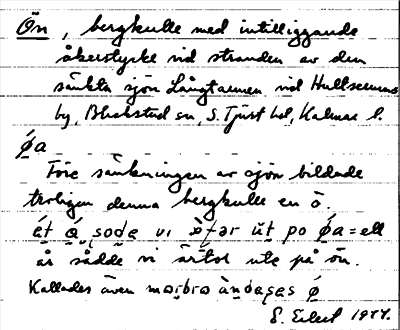 Ön, bergkulle med intilliggande
åkerstycke vid stranden av den
sänkta sjön Långtarmen vid Hultserums
by, Blackstad sn, S. Tjust hd, Kalmar l.
ǿa
Före sänkningen av sjön bildade
troligen denna bergkulle en ö.
ét sode vi ùt po ǿa = ett
år sådde vi ärtor ute på ön.
Kallades även ǿ
1944.